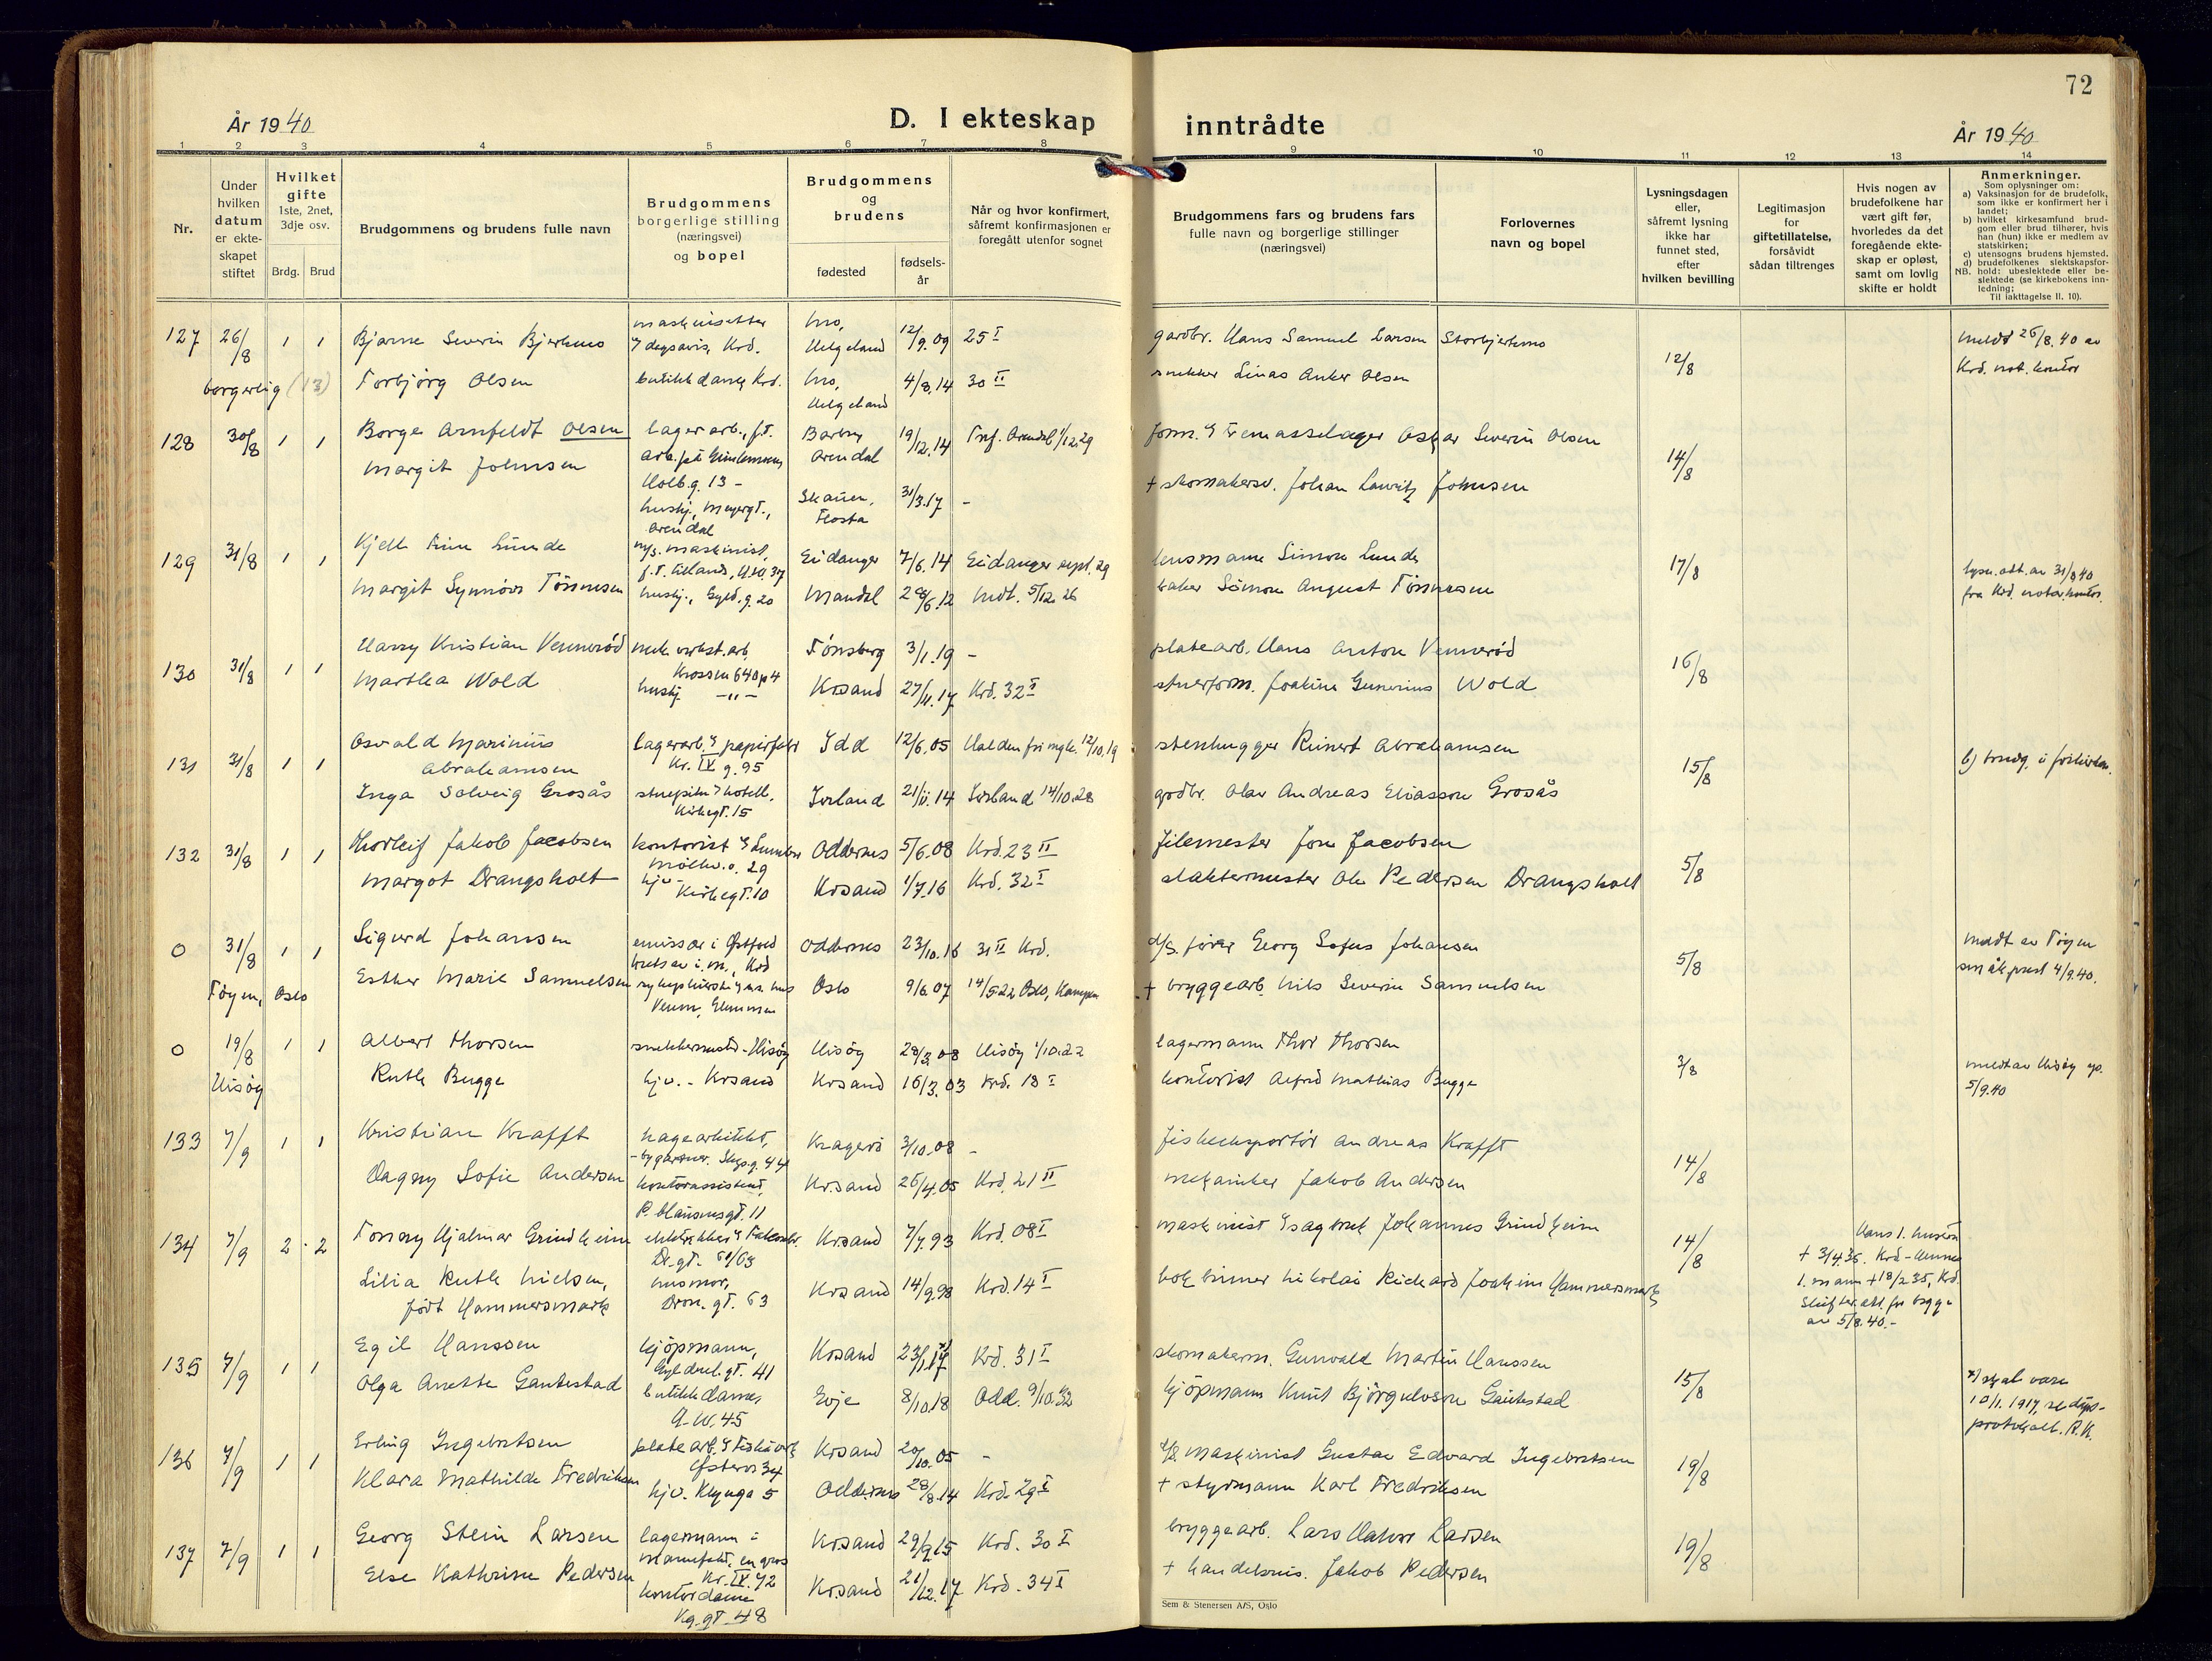 72
År 1940
D. I ekteskap inntrådte
År 1940
1 2 3 4 5 6 7 8 9 10 11 12 13 14
Nr.
Under hvilken datum er ekteskapet stiftet
Hvilket gifte 1ste, 2net, 3dje osv.
Brdg. Brud
Brudgommens og brudens fulle navn
Brudgommens borgerlige stilling (næringsvei) og bopel
Brudgommens og brudens
fødested
fødselsår
Når og hvor konfirmert, såfremt konfirmasjonen er foregått utenfor sognet
Brudgommens fars og brudens fars fulle navn og borgerlige stillinger (næringsvei)
Forlovernes navn og bopel
Lysningsdagen eller, såfremt lysning ikke har funnet sted, efter hvilken bevilling
Legitimasjon for giftetillatelse, forsåvidt sådan tiltrenges
Hvis nogen av brudefolkene har vært gift før, hvorledes da det foregående ekteskap er opløst, samt om lovlig skifte er holdt
Anmerkninger.
Som oplysninger om:
a) Vaksinasjon for de brudefolk, som ikke er konfirmert her i landet;
b) hvilket kirkesamfund brudgom eller brud tilhører, hvis han (hun) ikke er medlem av statskirken;
c) utensogns brudens hjemsted.
d) brudefolkenes slektskapsforhold: ubeslektede eller beslektede (se kirkebokens innledning;
NB. Til iakttagelse II. 10).
127 26/8 1 1 Bjarne Severin Bjerkmo
Mo, Helgeland 12/9.09 25 I
gardbr. Hans Samuel Larsen Storbjerkmo
12/8
meldt 26/8.40 av Krd. not. kontor
borgerlig (13) Torbjørg Olsen butikkdame, Krd. Mo, Helgeland 4/8.14 30 II
snekker Linas Anker Olsen
128 30/8 1 1 Borge Arnfeldt Olsen lagerarb., f.t.
Holb.g. 13 -
Barbu Arendal 19/12.14
Oskar Severin Olsen
14/8
Margit Johnsen
husj., Meyergt., Arendal
Flosta 31/3.17 -
+ skomakersv. Johan Lauritz Johnsen
129 31/8 1 1 Kjell Finn Lunde
Eidanger 7/6.14 Eidanger sept. 29
lensmann Simon Lunde
17/8
Margit Synnøve Tönnesen husj., Gyld.g. 20 Mandal 28/6.12 Mdl. 5/12.26
baker Simon August Tönnesen
lysn.att. av 31/8.40
130 31/8 1 1 Harry Kristian Vennerød mek. verkst. arb.
Tønsberg 3/1.19 -
platearb. Hans Anton Vennerød
16/8
Martha Wold husj. -"- Krsand 27/11.17 Krd. 32 I
stuerform. Joakim Gunerius Wold
131 31/8 1 1 Osvald Marinius Abrahamsen
lagerarb. papirfabr Kr. IV g. 95
Idd 12/6.05
stenhugger Reinert Abrahamsen
15/8
Inga Solveig Grosås
Kirkegt. 15
21/11.14
gardbr. Olav Andreas Eliassøn Grosås
132 31/8 1 1 Thorleif Jakob Jacobsen kontorist
Oddernes 5/6.08 Krd. 23 II
filemester Jon Jacobsen
5/8
Margot Drangsholt hjv - Kirkegt. 10 Krsand 1/7.16 Krd. 32 I
slaktermester Ole Pedersen Drangsholt
0 31/8 1 1 Sigurd Johansen emissær i Østfold krets av i.m., Krd
Oddernes 23/10.16 31 II Krd.
Georg Sofus Johansen
5/8
meldt av Tøyen småk.prest 4/9.40.
Tøyen, Oslo Esther Marie Samuelsen
Oslo 9/6.07 14/5.22 Oslo, Kampen
+ bryggearb. Nils Severin Samuelsen
0 19/8 1 1 Albert Thorsen snekkermester - Hisöy Hisöy 28/3.08 Hisöy 1/10.22
lagermann Thor Thorsen
3/8
Hisöy Ruth Bugge hjv. - Krsand Krsand 16/3.03 Krd. 18 I
kontorist Alfred Mathias Bugge
meldt av Hisöy sp. 5/9.40
133 7/9 1 1 Kristian Krafft hagearkitekt,
Kragerö 3/10.08 -
fiskeeksportör Andreas Krafft
14/8
Dagny Sofie Andersen kontorassistent,
Krsand 26/4.05 Krd. 21 II
mekaniker Jakob Andersen
134 7/9 2 - 2 Tommy Hjalmar Grindheim
Dr.gt. 61/63
Krsand 7/7.93 Krd. 08 I
maskinist Johannes Grindheim
14/8
Hans 1. hustru + 3/4.36. Krd -
1. mann + 18/2 35, Krd.
av 5/8.40.-
Lilia Ruth Nielsen, født Hammersmark
husmor, Dron.gt. 63
Krsand 14/9.98 Krd. 14 I
bokbinner Nikolai Rickard Joakim Hammersmark
135 7/9 1 1 Egil Hanssen kjöpmann, Gyldenl.gt. 41
Krsand 23/1.17 x) Krd. 31 I
skomakerm. Gunvald Martin Hanssen
15/8
Olga Anette Gautestad butikkdame, q-W. 45
Evje 8/10.18 Odd. 9/10.32
kjöpmann Knut Björgulvson Gautestad
x) skal være 10/1. 1917, se dåps-protokoll. R.K.
136 7/9 1 1 Erling Ingebretsen platearb.
Østerv. 34
Krsand 20/10.05 -
maskinist Gustav Edvard Ingebretsen
19/8
Klara Mathilde Fredriksen hjv. Klynga 5 Oddernes 28/8.14 Krd. 29 I
+ styrmann Karl Fredriksen
137 7/9 1 1 Georg Stein Larsen lagermann i manufakt. en gros Kr. IV. 72
Krsand 29/9.15 Krd. 30 I
bryggearb. Lars Halvor Larsen
19/8
Else Kathrine Pedersen kontordame Kg.gt. 48
Krsand 21/12.17 Krd. 34 I
+ handelsreis. Jakob Pedersen
Sem & Stenersen A/S, Oslo